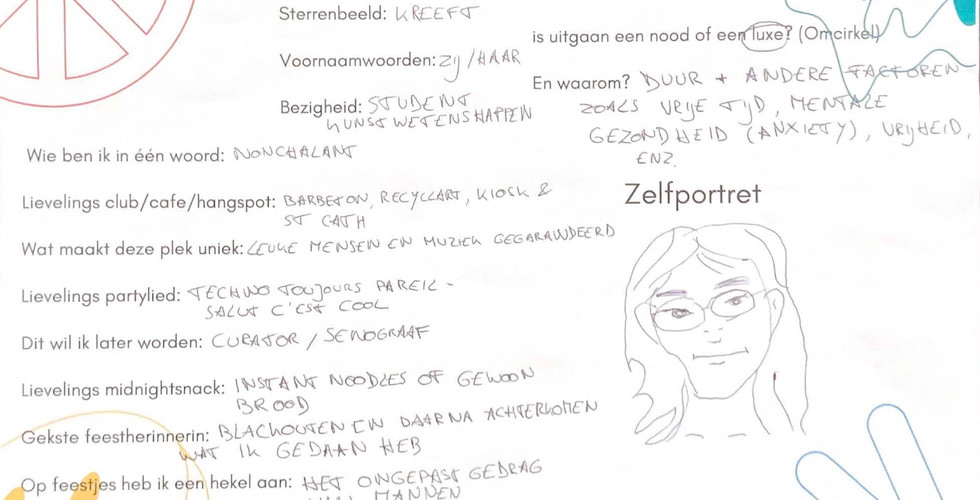 Sterrenbeeld: KREEFT
Voornaamwoorden: ZIJ/HAAR
Bezigheid: STUDENT
KUNSTWETENSHAPPEN
Wie ben ik in één woord: NONCHALANT
Lievelings club/cafe/hangspot: BARBETON, RECYCLART, KIOSK &
ST CATH
Wat maakt deze plek uniek: LEUKE MENSEN EN MUZIEK GEGARANDEERD
Lievelings partylied: TECHNO TOUJOURS PAREIL -
SALUT C'EST COOL
Dit wil ik later worden: CURATOR / SENOGRAAF
Lievelings midnightsnack: INSTANT NOODLES OF GEWOON
BROOD
Gekste feestherinnerin: BLACKOUTEN EN DAARNA ACHTERKOMEN
WAT IK GEDAAN HEB
Op feestjes heb ik een hekel aan: HET ONGEPAST GEDRAG
MANNEN
is uitgaan een nood of een luxe? (Omcirkel)
En waarom? DUUR + ANDERE FACTOREN
ZOALS VRIJE TIJD, MENTALE
GEZONDHEID (ANXIETY), VRIJHEID,
ENZ.
Zelfportret